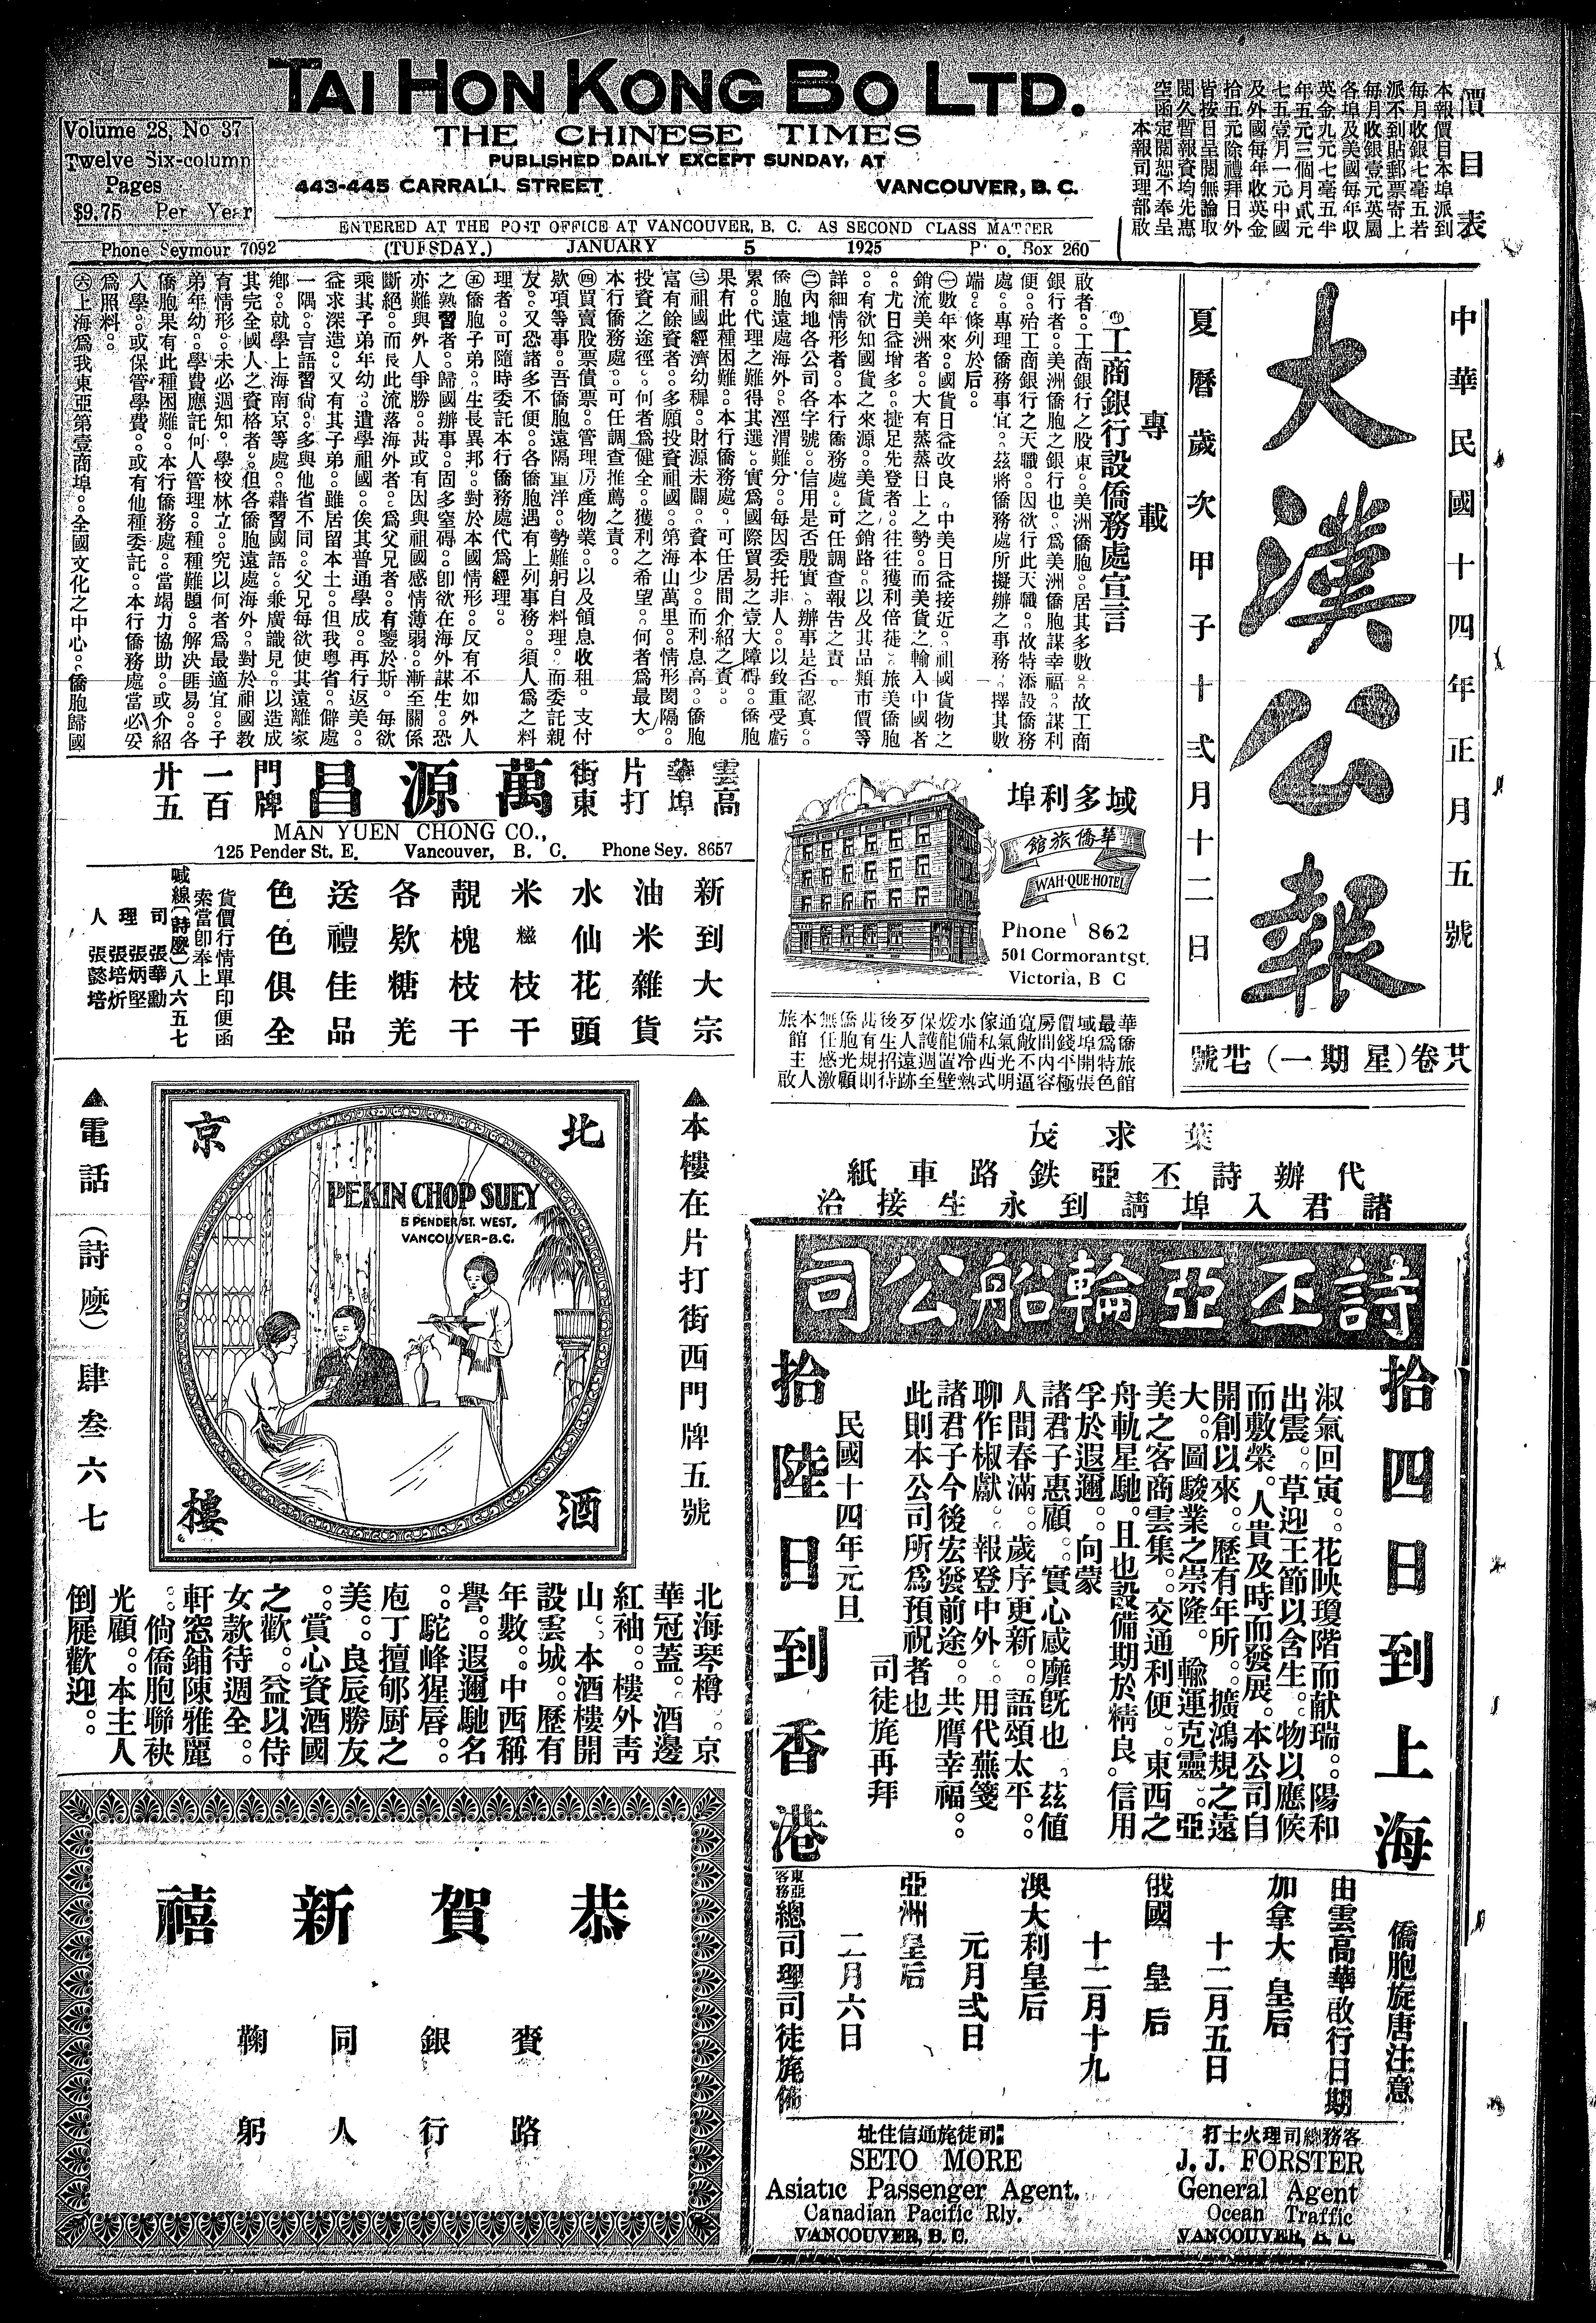 TAI HON KONG BO LTD.
THE CHINESE TIMES
PUBLISHED DAILY EXCEPT SUNDAY, AT
443-445 CARRALL STREET VANCOUVER, B. C.
Volume 28, No 37
Twelve Six-column
Pages
$9.75 Per Year
ENTERED AT THE POST OFFICE AT VANCOUVER, B. C. AS SECOND CLASS MATTER
Phone Seymour 7092 (TUESDAY.) JANUARY 5 1925 P. o. Box 260
價目表
本報價目本埠派到
每月收銀七毫五若
派不到貼郵票寄上
每月收銀壹元英屬
各埠及美國每年收
英金九元七毫五半
年五元三個月貳元
七五壹月一元中國
及外國每年收英金
拾五元除禮拜日外
皆按日呈閱無論取
閱久暫報資均先惠
空函定閱恕不奉呈
本報司理部啟
中華民國十四年正月五號
大漢公報
夏曆歲次甲子十弍月十二日
廿八卷（星期一）卅七號
專載
◎工商銀行設僑務處宣言
啟者。工商銀行之股東。美洲僑胞。居其多數。故工商
銀行者。美洲僑胞之銀行也。為美洲僑胞謀幸福。謀利
便。殆工商銀行之天職。因欲行此天職。故特添設僑務
處。專理僑務事宜。茲將僑務處所擬辦之事務。擇其數
端。條列於后。
㊀數年來。國貨日益改良。中美日益接近。祖國貨物之
銷流美洲者。大有蒸蒸日上之勢。而美貨之輸入中國者
。尤日益增多。捷足先登者。往往獲利倍徙。旅美僑胞
。有欲知國貨之來源。美貨之銷路。以及其品類市價等
詳細情形者。本行僑務處。可任調查報告之責。
㊁內地各公司各字號。信用是否殷實。辦事是否認真。
僑胞遠處海外。涇渭難分。每因委托非人。以致重受虧
累。代理之難得其選。實為國際貿易之壹大障碍。僑胞
果有此種困難。本行僑務處。可任居間介紹之責。
㊂祖國經濟幼穉。財源未闢。資本少。而利息高。僑胞
富有餘資者。多願投資祖國。第海山萬里。情形閡隔。
投資之途徑。何者為健全。獲利之希望。何者為最大。
本行僑務處。可任調查推薦之責。
㊃買賣股票債票。管理房產物業。以及領息收租。支付
欵項等事。吾僑胞遠隔重洋。勢難躬自料理。而委託親
友。又恐諸多不便。各僑胞遇有上列事務。須人為之料
理者。可隨時委託本行僑務處代為經理。
㊄僑胞子弟。生長異邦。對於本國情形。反有不如外人
之熟習者。歸國辦事。固多窒碍。卽欲在海外謀生。恐
亦難與外人爭勝。甚或有因與祖國感情薄弱。漸至關係
斷絕。而長此流落海外者。為父兄者。有鑒於斯。每欲
乘其子弟年幼。遣學祖國。俟其普通學成。再行返美。
益求深造。又有其子弟。雖居留本土。但我粤省。僻處
一隅。言語習尙。多與他省不同。父兄每欲使其遠離家
鄉。就學上海南京等處。藉習國語。兼廣識見。以造成
其完全國人之資格者。但各僑胞遠處海外。對於祖國教
育情形。未必週知。學校林立。究以何者為最適宜。子
弟年幼。學費應託何人管理。種種難題。解決匪易。各
僑胞果有此種困難。本行僑務處。當竭力協助。或介紹
入學。或保管學費。或有他種委託。本行僑務處當必妥
為照料。
㊅上海為我東亞第壹商埠。全國文化之中心。僑胞歸國
雲高華埠片打街東
萬源昌
門牌一百廿五
MAN YUEN CHONG CO.,
125 Pender St. E. Vancouver, B. C. Phone Sey. 8657
新到大宗
油米雜貨
水仙花頭
米糍枝干
靚槐枝干
各欵糖羌
送禮佳品
色色俱全
貨價行情單印便函
索當卽奉上
喊線（詩麼）八六五七
司理人
張華勳
張炳堅
張培炘
張懿培
域多利埠
華僑旅館
WAH·QUE·HOTEL
Phone 862
501 Cormorant st.
Victoria, B C
華僑旅館
最為特色
域埠開張
價錢平極
房間內容
寬敞不逼
通氣光明
傢私西式
水備冷熱
煖龍置壁
保護週至
歹人遠跡
後生招待
萬有規則
僑胞光顧
無任感激
本館主人
旅啟
葉求茂
代辦詩丕亞鉄路車紙
諸君入埠請到永生接洽
▲本樓在片打街西門牌五號
北京酒樓
PEKIN CHOP SUEY
5 PENDER ST. WEST,
VANCOUVER-B.C.
▲電話（詩麽）肆叁六七
北海琴樽。京
華冠蓋。酒邊
紅袖。樓外青
山。本酒樓開
設雲城。歷有
年數。中西稱
譽。遐邇馳名
。駝峰猩唇。
庖丁擅郇厨之
美。良辰勝友
。賞心資酒國
之歡。益以侍
女款待週全。
軒窓鋪陳雅麗
。倘僑胞聯袂
光顧。本主人
倒屣歡迎。
詩丕亞輪船公司
拾四日到上海
淑氣回寅。花映瓊階而献瑞。陽和
出震。草迎王節以含生。物以應候
而敷榮。人貴及時而發展。本公司自
開創以來。歷有年所。擴鴻規之遠
大。圖駿業之崇隆。輸運克靈。亞
美之客商雲集。交通利便。東西之
舟軌星馳。且也設備期於精良。信用
孚於遐邇。向蒙
諸君子惠顧。實心感靡旣也。茲値
人間春滿。歲序更新。語頌太平。
聊作椒獻。報登中外。用代蕪箋
諸君子今後宏發前途。共膺幸福。
此則本公司所為預祝者也
司徒旄再拜
民國十四年元旦
拾陸日到香港
僑胞旋唐注意
由雲高華啟行日期
加拿大皇后
十二月五日
俄國皇后
十二月十九
澳大利皇后
元月弍日
亞洲皇后
二月六日
東亞客務總司理司徒旄佈
客務總司理火士打
J. J. FORSTER
General Agent
Ocean Traffic
VANCOUVER, B. C.
司徒旄通信住址
SETO MORE
Asiatic Passenger Agent.
Canadian Pacific Rly.
VANCOUVER, B. C.
恭賀新禧
賚路
銀行
同人
鞠躬